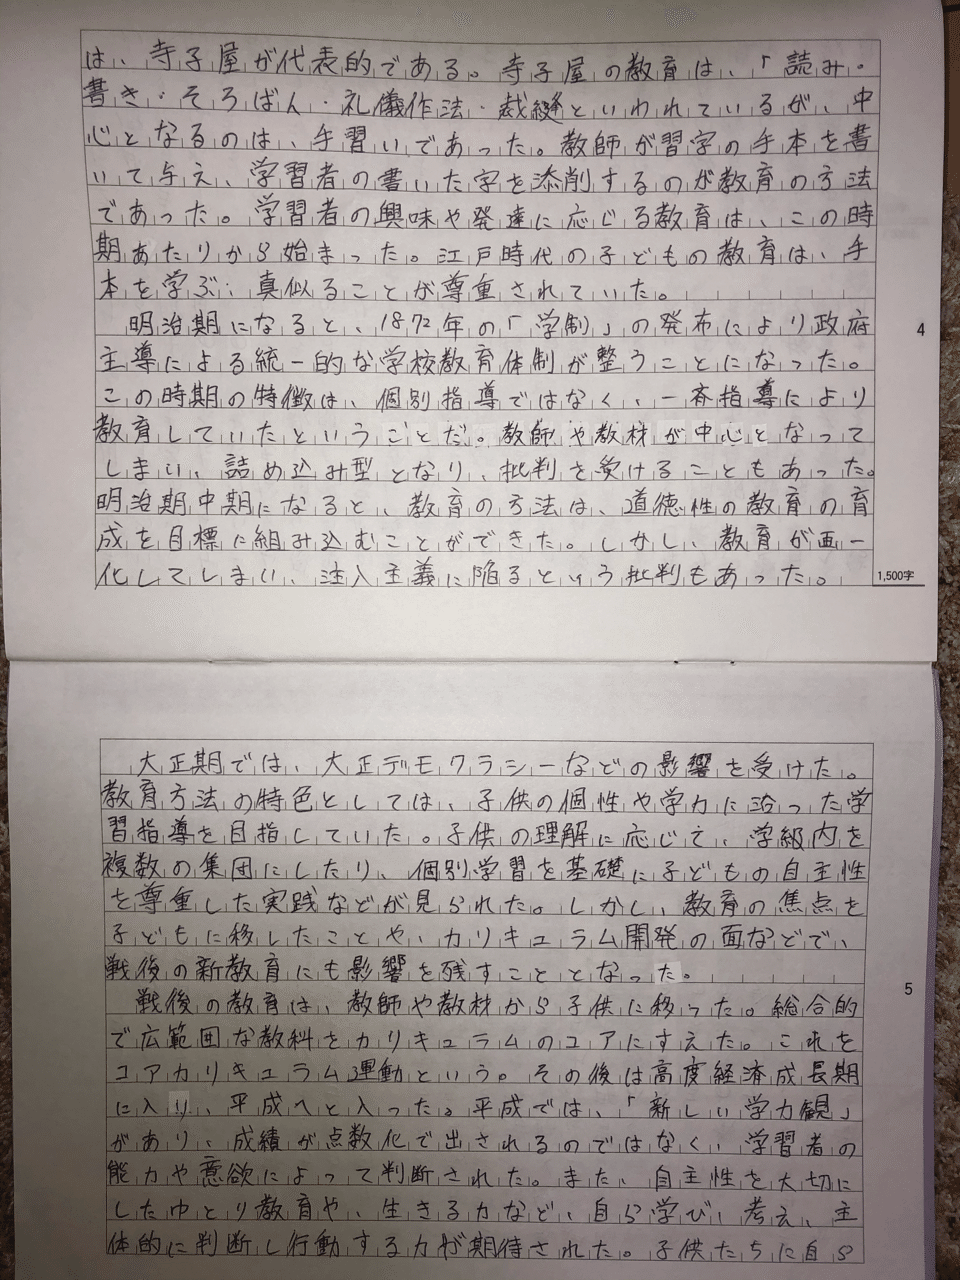 は、寺子屋が代表的である。寺子屋の教育は、「読み・
書き・そろばん・礼儀作法・裁縫といわれているが、中
心となるのは、手習いであった。教師が習字の手本を書
いて与え、学習者の書いた字を添削するのが教育の方法
であった。学習者の興味や発達に応じる教育は、この時
期あたりから始まった。江戸時代の子どもの教育は、手
本を学ぶ、真似ることが尊重されていた。
明治期になると、1872年の「学制」の発布により政府
主導による統一的な学校教育体制が整うことになった。
この時期の特徴は、個別指導ではなく、一斉指導により
教育していたということだ。教師や教材が中心となって
しまい、詰め込み型となり、批判を受けることもあった。
明治期中期になると、教育の方法は、道徳性の教育の育
成を目標に組み込むことができた。しかし、教育が画一
化してしまい、注入主義に陥るという批判もあった。
1,500字
4
大正期では、大正デモクラシーなどの影響を受けた。
教育方法の特色としては、子供の個性や学力に沿った学
習指導を目指していた。子供の理解に応じて、学級内を
複数の集団にしたり、個別学習を基礎に子どもの自主性
を尊重した実践などが見られた。しかし、教育の焦点を
子どもに移したことや、カリキュラム開発の面などで、
戦後の新教育にも影響を残すこととなった。
戦後の教育は、教師や教材から子供に移った。総合的
で広範囲な教科をカリキュラムのコアにすえた。これを
コアカリキュラム運動という。その後は高度経済成長期
に入り、平成へと入った。平成では、「新しい学力観」
があり、成績が点数化で出されるのではなく、学習者の
能力や意欲によって判断された。また、自主性を大切に
したゆとり教育や、生きる力など、自ら学び、考え、主
体的に判断し行動する力が期待された。子供たちに自ら
5